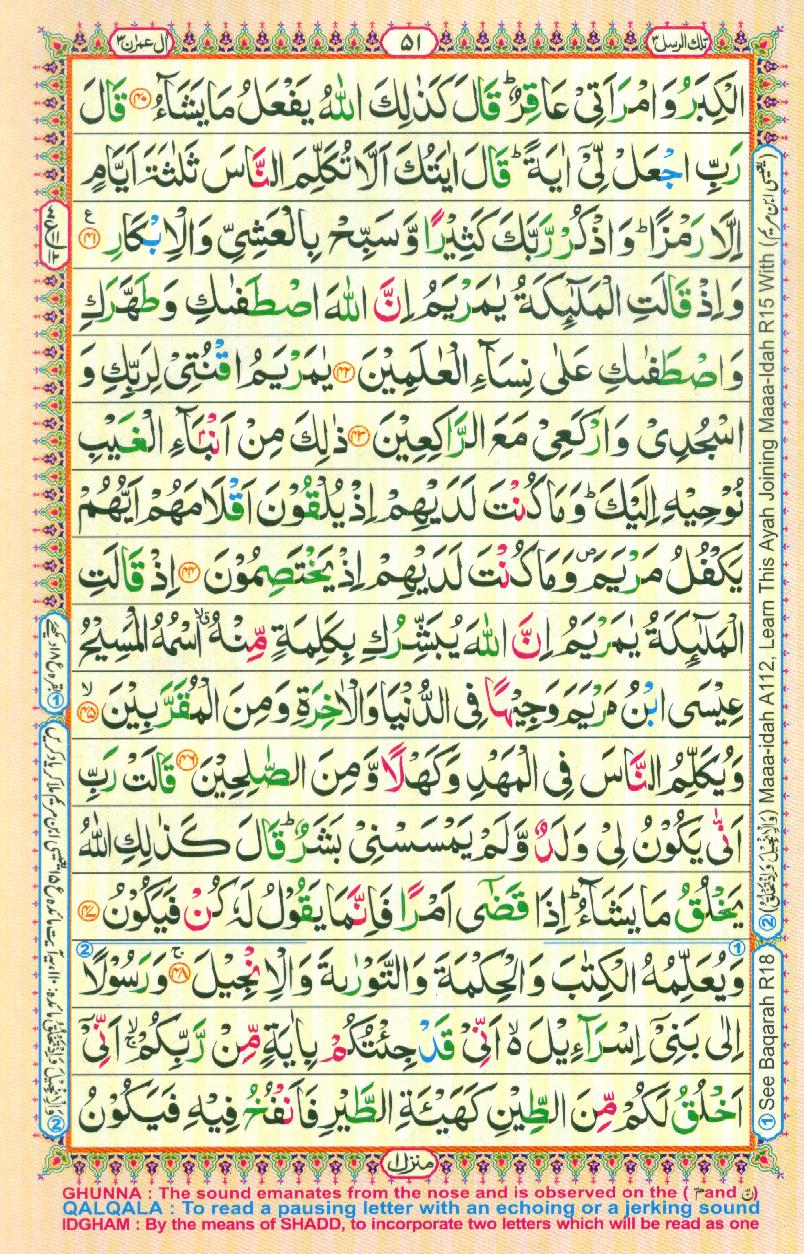 تلك الرسل ٣
٥١
ال عمرٰن ٣
الْكِبَرُ وَامْرَاَتِیْ عَاقِرٌ ؕ قَالَ كَذٰلِكَ اللّٰهُ یَفْعَلُ مَا یَشَآءُ ﴿۴۰﴾ قَالَ
رَبِّ اجْعَلْ لِّیْۤ اٰیَةً ؕ قَالَ اٰیَتُكَ اَلَّا تُكَلِّمَ النَّاسَ ثَلٰثَةَ اَیَّامٍ
اِلَّا رَمْزًا ؕ وَاذْكُرْ رَّبَّكَ كَثِیْرًا وَّسَبِّحْ بِالْعَشِیِّ وَالْاِبْكَارِ ﴿۴۱﴾ ع
وَاِذْ قَالَتِ الْمَلٰٓئِكَةُ یٰمَرْیَمُ اِنَّ اللّٰهَ اصْطَفٰىكِ وَطَهَّرَكِ
وَاصْطَفٰىكِ عَلٰی نِسَآءِ الْعٰلَمِیْنَ ﴿۴۲﴾ یٰمَرْیَمُ اقْنُتِیْ لِرَبِّكِ وَ
اسْجُدِیْ وَارْكَعِیْ مَعَ الرّٰكِعِیْنَ ﴿۴۳﴾ ذٰلِكَ مِنْ اَنْۢبَآءِ الْغَیْبِ
نُوْحِیْهِ اِلَیْكَ ؕ وَمَا كُنْتَ لَدَیْهِمْ اِذْ یُلْقُوْنَ اَقْلَامَهُمْ اَیُّهُمْ
یَكْفُلُ مَرْیَمَ ۪ وَمَا كُنْتَ لَدَیْهِمْ اِذْ یَخْتَصِمُوْنَ ﴿۴۴﴾ اِذْ قَالَتِ
الْمَلٰٓئِكَةُ یٰمَرْیَمُ اِنَّ اللّٰهَ یُبَشِّرُكِ بِكَلِمَةٍ مِّنْهُ ۖۗ اسْمُهُ الْمَسِیْحُ
عِیْسَی ابْنُ مَرْیَمَ وَجِیْهًا فِی الدُّنْیَا وَالْاٰخِرَةِ وَمِنَ الْمُقَرَّبِیْنَ ﴿۴۵﴾ ۙ
وَیُكَلِّمُ النَّاسَ فِی الْمَهْدِ وَكَهْلًا وَّمِنَ الصّٰلِحِیْنَ ﴿۴۶﴾ قَالَتْ رَبِّ
اَنّٰی یَكُوْنُ لِیْ وَلَدٌ وَّلَمْ یَمْسَسْنِیْ بَشَرٌ ؕ قَالَ كَذٰلِكِ اللّٰهُ
یَخْلُقُ مَا یَشَآءُ ؕ اِذَا قَضٰۤی اَمْرًا فَاِنَّمَا یَقُوْلُ لَهٗ كُنْ فَیَكُوْنُ ﴿۴۷﴾
وَیُعَلِّمُهُ الْكِتٰبَ وَالْحِكْمَةَ وَالتَّوْرٰىةَ وَالْاِنْجِیْلَ ﴿۴۸﴾ ۚ وَرَسُوْلًا
اِلٰی بَنِیْۤ اِسْرَآءِیْلَ ۙ۬ اَنِّیْ قَدْ جِئْتُكُمْ بِاٰیَةٍ مِّنْ رَّبِّكُمْ ۙ اَنِّیْۤ
اَخْلُقُ لَكُمْ مِّنَ الطِّیْنِ كَهَیْـَٔةِ الطَّیْرِ فَاَنْفُخُ فِیْهِ فَیَكُوْنُ
① See Baqarah R18
② (وَالْاِنْجِيْلَ وَاِذْ تَخْلُقُ) Maaa-idah A112, Learn This Ayah Joining Maaa-Idah R15 With (يعيسى ابن مريم)
منزل ١
GHUNNA : The sound emanates from the nose and is observed on the ( مّ and نّ)
QALQALA : To read a pausing letter with an echoing or a jerking sound
IDGHAM : By the means of SHADD, to incorporate two letters which will be read as one